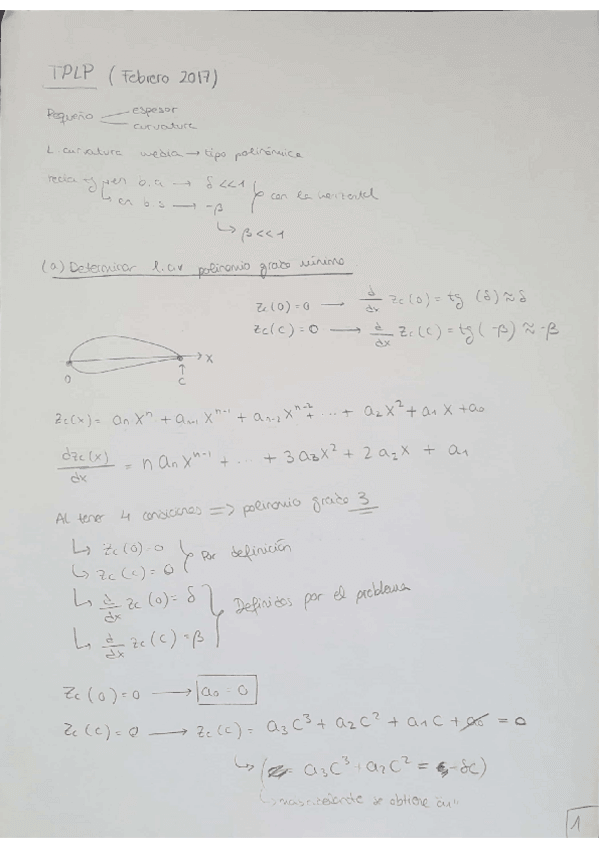 TPLP (Febrero 2017)
Pequeño espesor
curvatura
L. curvatura media → tipo polinómica
recta tg en b.a → δ <<1 con la horizontal
en b.s → -β
↳ β <<1
(a) Determinar polinomio grado mínimo
Zc(0) = 0 → d/dx Zc(0) = tg (δ) ≈ δ
Zc(c) = 0 → d/dx Zc(c) = tg(-β) ≈ -β
0 c x
Zc(x) = anx^n + an-1 x^n-1 + an-2 x^n-2 + ... + a2x^2 + a1x + a0
dZc(x)/dx = n an x^n-1 + ... + 3a3x^2 + 2a2x + a1
Al tener 4 condiciones => polinomio grado 3
↳ Zc(0) = 0 Por definición
↳ Zc(c) = 0
↳ d/dx Zc(0) = δ Definidos por el problema
↳ d/dx Zc(c) = β
Zc(0) = 0 → a0 = 0
Zc(c) = 0 → Zc(c) = a3c^3 + a2c^2 + a1c + a0 = 0
↳ ( a3c^3 + a2c^2 = -δc)
se obtiene
1